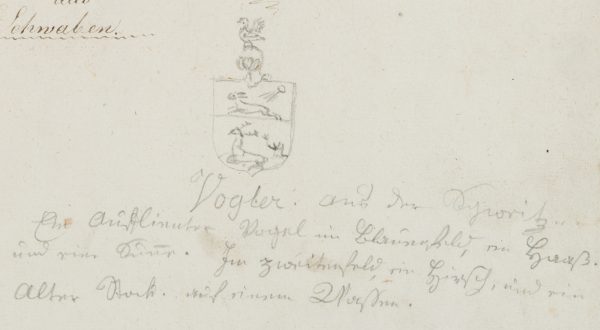 aus
Schwaben.
Vogler: aus der Schweitz.
Ein Auffliender Vogel im Blauenfeld, ein Haaß.
und eine Sonne. Im zweitenfeld ein Hirsch, und ein
Alter Stock. auf einem Wassen.